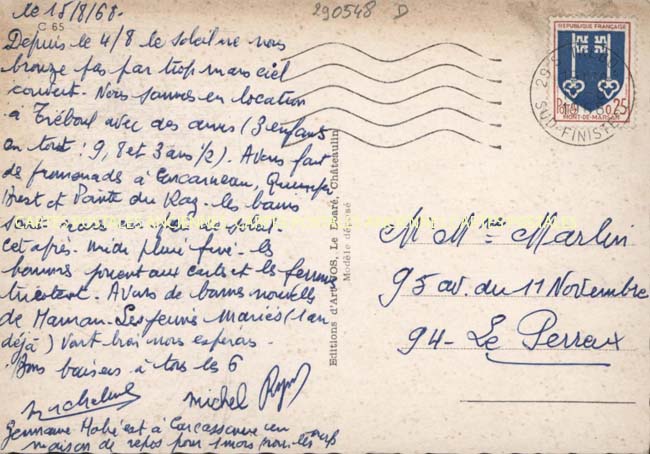 le 15/8/68.
C 65
290548 D
Depuis le 4/8 le soleil ne nous
bronze pas par trop mais ciel
couvert - Nous sommes en location
à Tréboul avec des amis (3 enfants
en tout : 9, 8 et 3 ans 1/2). Avons fait
de promenade à Concarneau, Quimper
Brest et Pointe du Raz - les bains
sont rares
cet après-midi pluie fine - les
hommes jouent aux cartes et les femmes
tricotent - Avons de bonnes nouvelles
de Maman - Les jeunes Mariés (1 an
déjà) vont bien nous espérons -
Bons baisers à tous les 6
Micheline Michel
Germaine est à Carcassonne en
maison de repos pour 1 mois
Editions d'Art JOS, Le Doaré, Châteaulin
Modèle déposé
REPUBLIQUE FRANÇAISE
0,25
MONT-DE-MARSAN
SUD-FINISTE
M Mme Marlin
95 av. du 11 Novembre
94 - Le Perreux